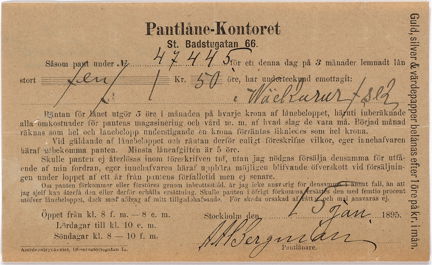 Pantlåne-Kontoret
St. Badstugatan 66.
Såsom pant under № 47445 för ett denna dag på 3 månader lemnadt lån
stort /en/ 1 Kr. 50 öre, har undertecknad emottagit:
1 Wäckarur
Räntan för lånet utgör 5 öre i månaden på hvarje krona af lånebeloppet, häruti inberäknade
alla omkostnader för pantens magasinering och vård m. m. af hvad slag de vara må. Börjad månad
räknas som hel och lånebelopp understigande en krona förräntas likaledes som hel krona.
Vid gäldande af lånebeloppet och räntan derför enligt föreskrifne vilkor, eger innehafvaren
häraf utbekomma panten. Minsta låneafgiften är 5 öre.
Skulle panten ej återlösas inom föreskrifven tid, utan jag nödgas försälja densamma för utfå-
ende af min fordran, eger innehafvaren häraf uppbära möjligen blifvande öfverskott vid försälj-
ningen under loppet af ett år från pantens förfallotid men ej senare.
Om panten förkommer
Öppet från kl. 8 f. m. – 8 e. m.
Lördagar till kl. 10 e. m.
Söndagar kl. 8–10 f. m.
Stockholm den 15 jan. 1895.
A Bergman
Pantlånare.
Guld, silver & värdepapper belånas efter 1 öre på kr. i mån.